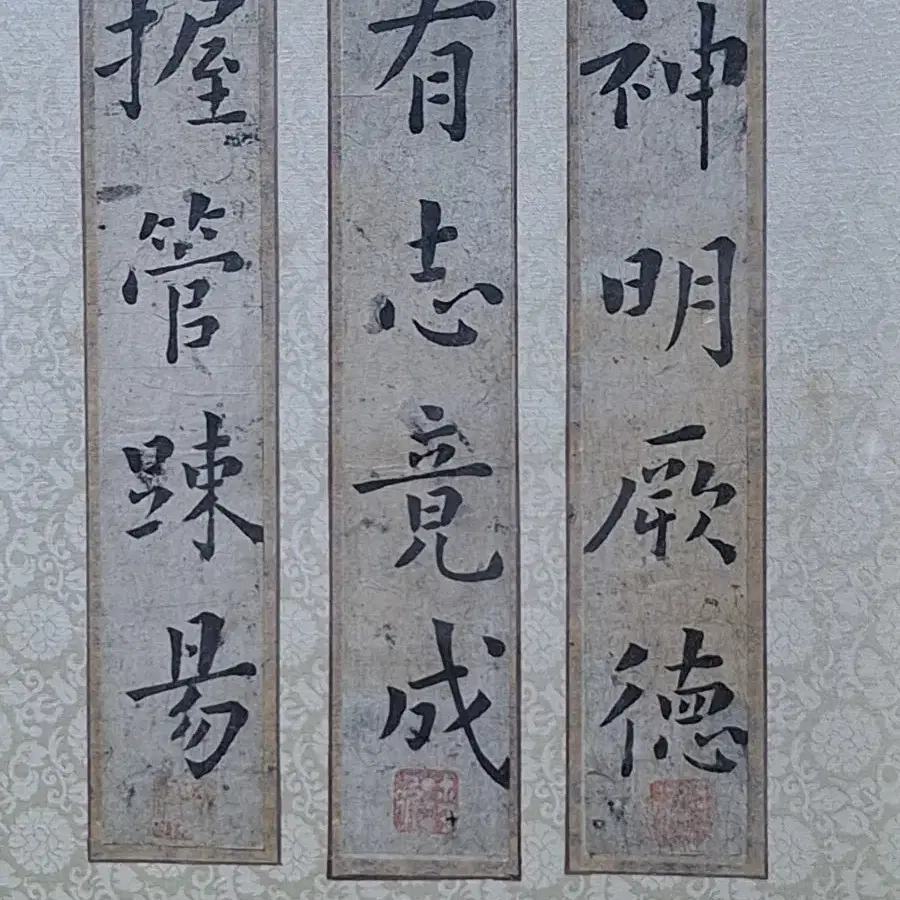 神明厥德
有志竟成
握管踈昜